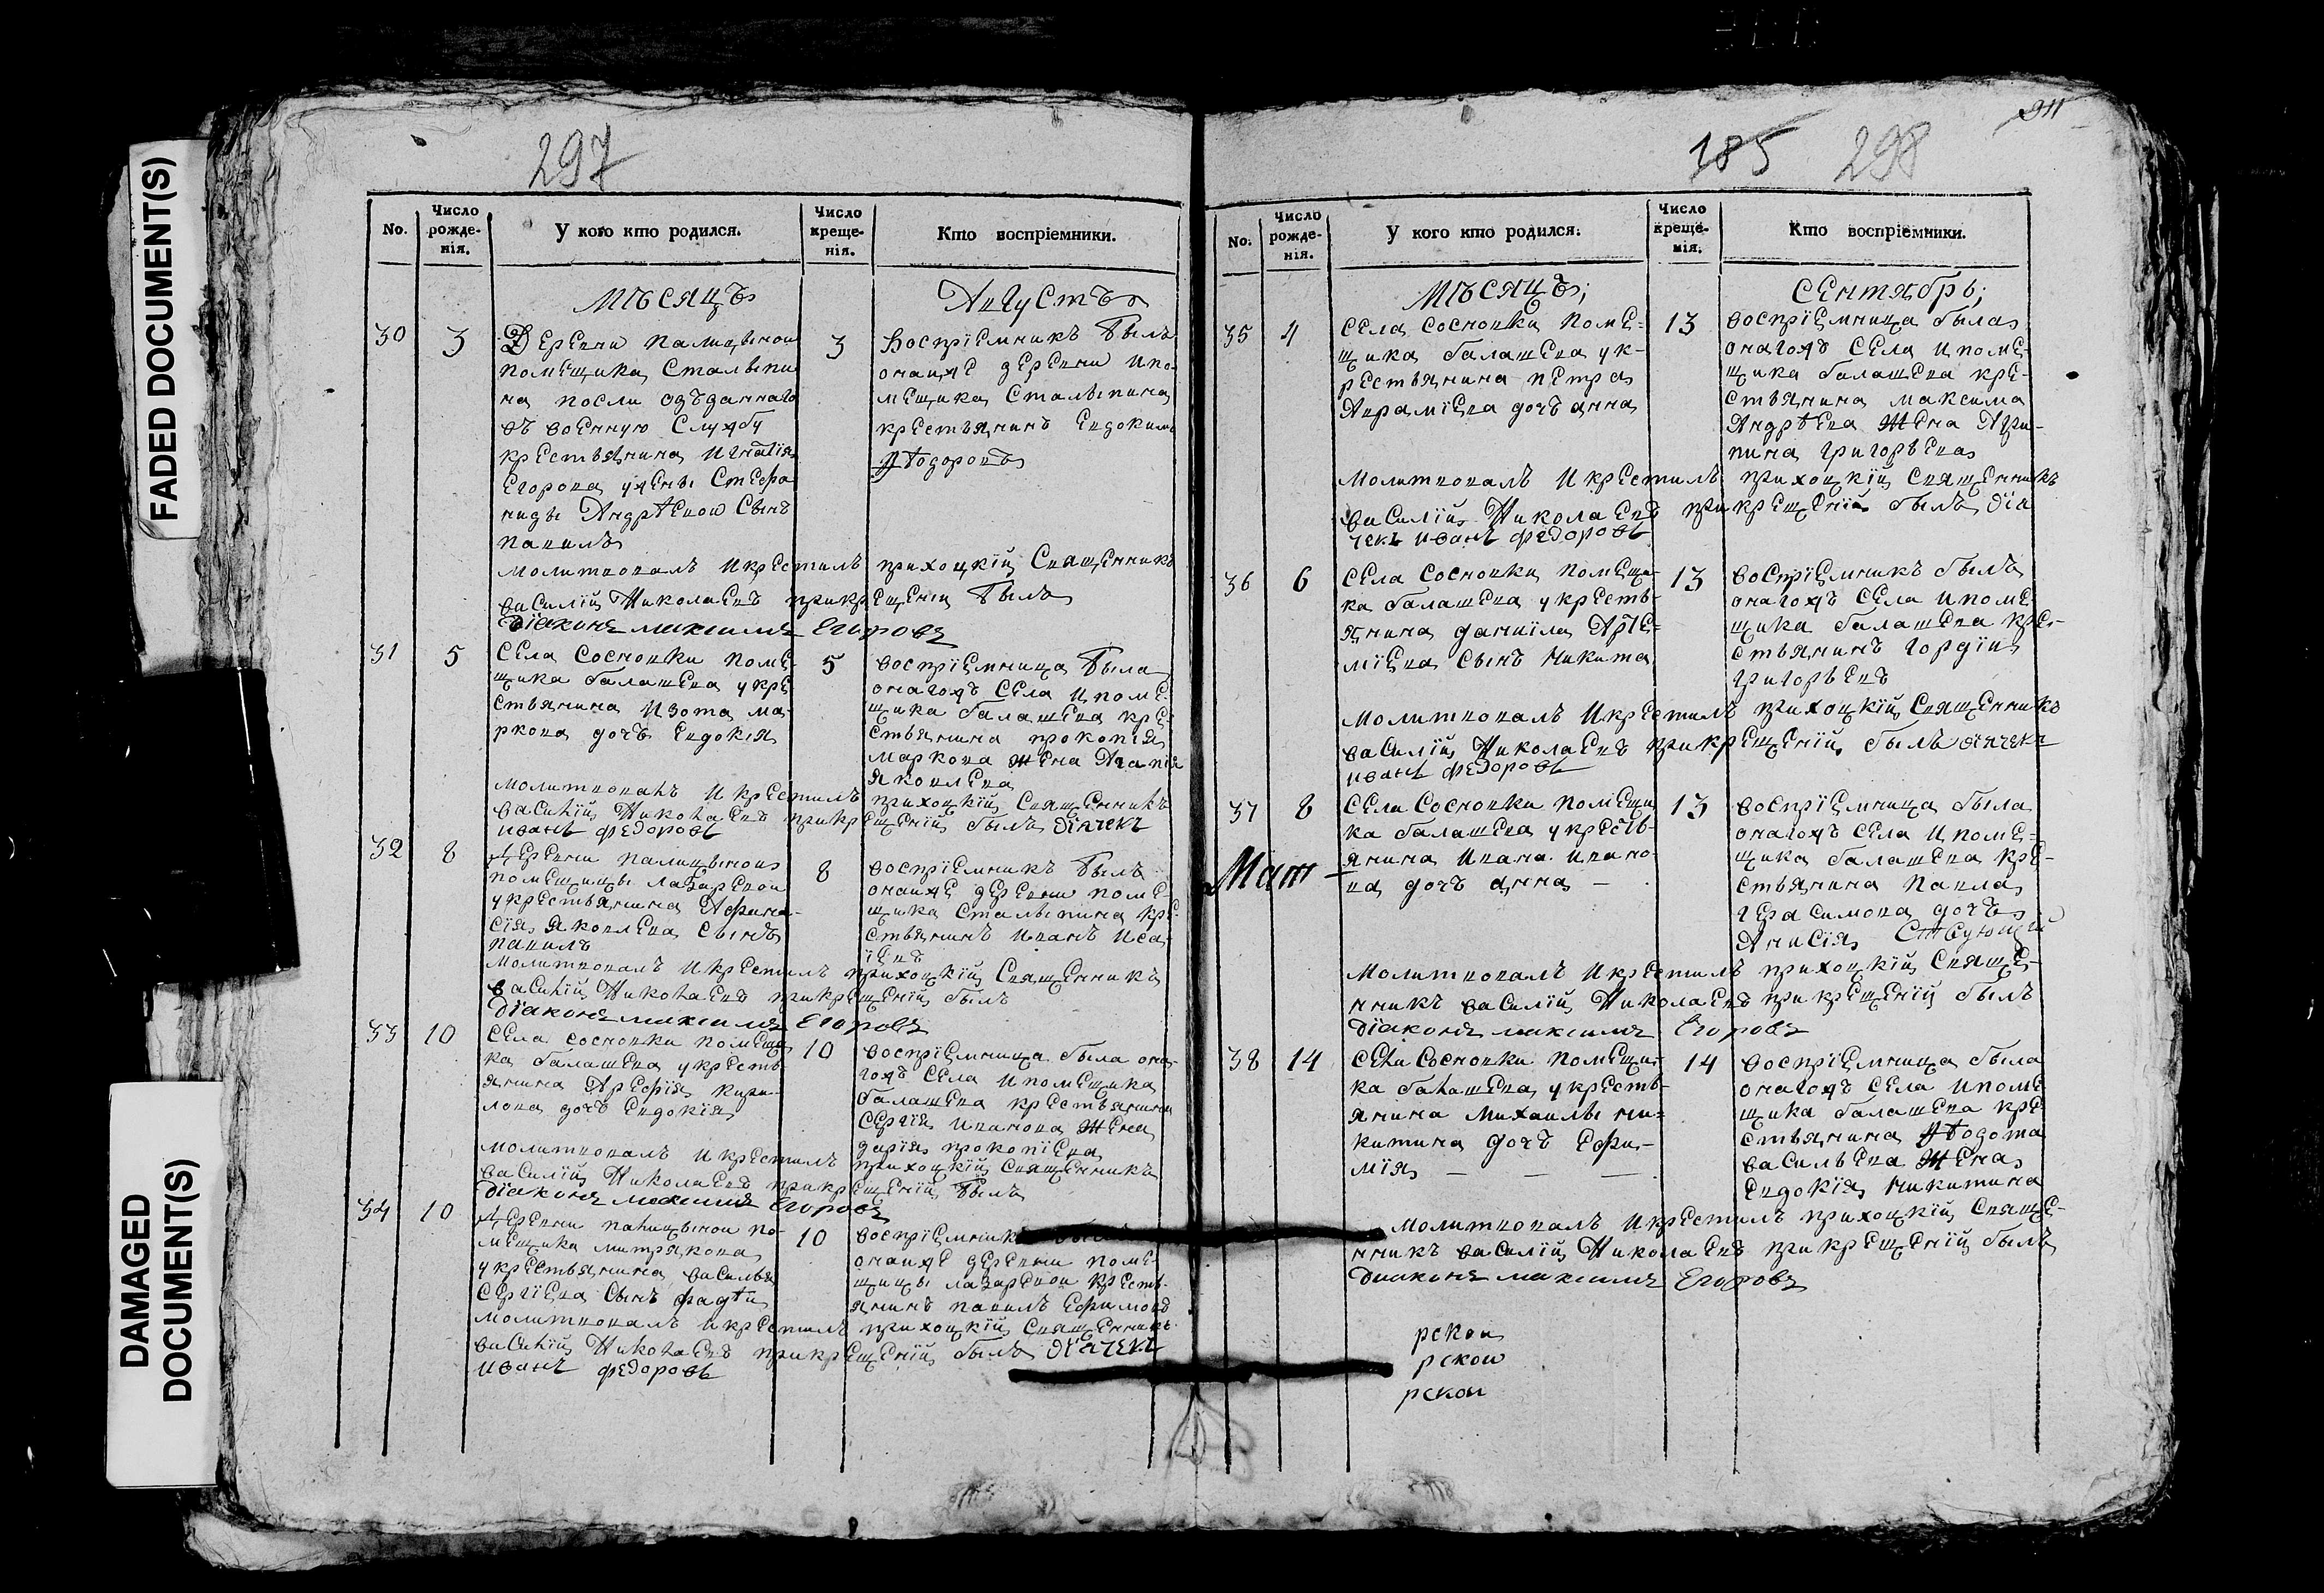 FADED DOCUMENT(S)
DAMAGED
DOCUMENT(S)
297
No.
Число
рожде-
нія.
У кого кто родился.
Число
креще-
нія.
Кто воспріемники.
мѣсяцъ
Августъ
30
3
Деревни палицыной
помещика Сталыпи
на посли одъданнаго
въ военную Службу
крестьянина игнатія
Егорова ужены Стефа
ниды Андрѣевой Сынъ
павилъ
3
воспріемникъ былъ
онаиже деревни ипо
мещика Сталыпина
крестьянинъ Евдокимъ
Ѳѣодоровъ
молитвовалъ икрестилъ прихоцкій Священникъ
василій Николаевъ прикрещеніи былъ
діаконъ максимъ Егоровъ
31
5
Села Сосновки поме-
щика балашева укре
стьянина Изота ма-
ркова дочъ Евдокія
5
воспріемница была
онагожъ Села ипоме-
щика балашева кре-
стьянина прокопія
маркова жена Агапія
яковлева
молитвовалъ икрестилъ прихоцкій Священникъ
василій Николаевъ прикрещеніи былъ дьячекъ
иванъ федоровъ
32
8
Деревни палицыной
помещицы лазаревой
укрестьянина Афана-
сія яковлева Сынъ
павилъ
8
воспріемникъ былъ
онаиже деревни поме-
щика Сталыпина кре-
стьянинъ иванъ иса-
іевъ
молитвовалъ икрестилъ прихоцкій Священникъ
василій Николаевъ прикрещеніи былъ
діаконъ максимъ Егоровъ
33
10
Села сосновки помещи
ка балашева укресть-
янина Арефія кири-
лова дочъ Евдокія
10
воспріемница была она-
гожъ Села ипомещика
балашева крестьянина
Сергія иванова жена
дарія прокопіева
молитвовалъ икрестилъ прихоцкій Священникъ
василій Николаевъ прикрещеніи былъ
діаконъ максимъ Егоровъ
34
10
Деревни палицыной по-
мещика митрякова
укрестьянина василья
Сергіева Сынъ фадѣй
10
воспріемникъ былъ
онаиже деревни поме-
щицы лазаревой кресть-
янинъ павилъ Ефимовъ
молитвовалъ икрестилъ прихоцкій Священникъ
василій Николаевъ прикрещеніи былъ дьячекъ
иванъ федоровъ
185 298
No.
Число
рожде-
нія.
У кого кто родился.
Число
креще-
нія.
Кто воспріемники.
мѣсяцъ;
Сентябрь;
35
4
Села сосновки поме-
щика балашева ук-
рестьянина петра
Авраміева дочъ анна
13
воспріемница была
онагожъ Села ипоме-
щика балашева кре-
стьянина максима
Андрѣева жена Агри-
пина григорьева
молитвовалъ икрестилъ прихоцкій Священникъ
василій Николаевъ прикрещеніи былъ дья
чекъ иванъ федоровъ
36
6
Села сосновки помещи-
ка балашева укресть-
янина даниила Арте-
міева Сынъ никита
13
воспріемникъ былъ
онагожъ Села ипоме
щика балашева кре-
стьянинъ гордій
григорьевъ
молитвовалъ икрестилъ прихоцкій Священникъ
василій Николаевъ прикрещеніи былъ дьячекъ
иванъ федоровъ
37
8
Села Сосновки помещи
ка балашева укресть-
янина ивана ивано-
ва дочъ анна —
13
воспріемница была
онагожъ Села ипоме-
щика балашева кре-
стьянина павла
герасимова дочъ
Анисія
молитвовалъ икрестилъ прихоцкій Свяще-
нникъ василій Николаевъ прикрещеніи былъ
діаконъ максимъ Егоровъ
38
14
Села Сосновки помещи-
ка балашева укресть-
янина михаилы ни-
китина дочъ Ефи-
мія — — —
14
воспріемница была
онагожъ Села ипоме
щика балашева кре-
стьянина Ѳѣодота
васильева жена
Евдокія никитина
молитвовалъ икрестилъ прихоцкій Свяще-
нникъ василій Николаевъ прикрещеніи былъ
диаконъ максимъ Егоровъ
рской
рской
рской